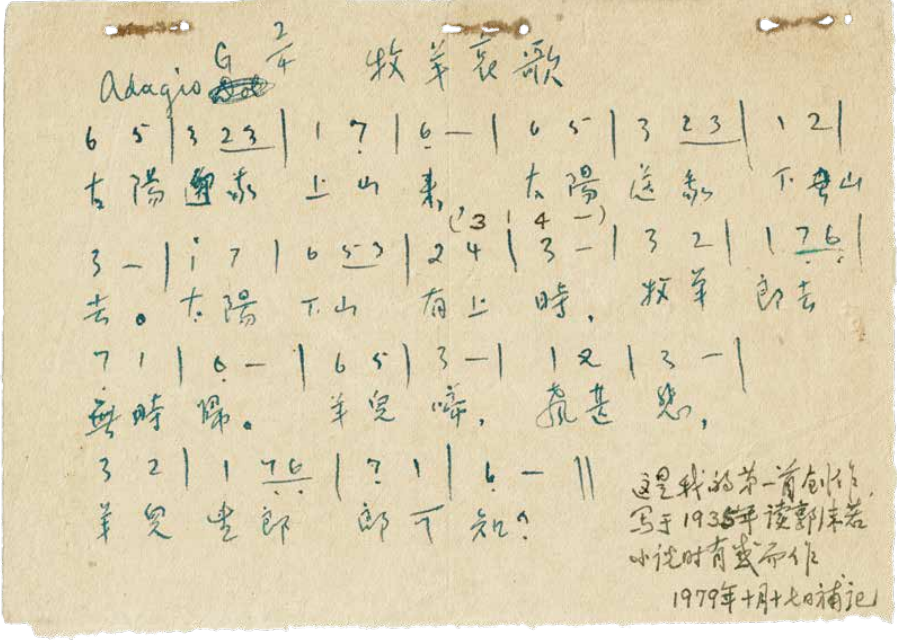 G 2/4 牧羊哀歌
Adagio
6 5 | 3 2 3 | 1 7̣ | 6̣ — | 6 5 | 3 2 3 | 1 2 |
太陽迎我上山来，太陽送我下山
(i 3 | 4 —)
3 — | i 7 | 6 5 3 | 2 4 | 3 — | 3 2 | 1 7̣ 6̣ |
去。太陽下山有上時，牧羊郎去
7̣ 1 | 6̣ — | 6 5 | 3 — | 1 2 | 3 — |
無時歸。羊兒啼，聲甚悲，
3 2 | 1 7̣ 6̣ | 7̣ 1 | 6̣ — ‖
羊兒望郎郎不知？
这是我的第一首创作，
写于1935年读郭沫若
小说时有感而作
1979年十月十七日補記